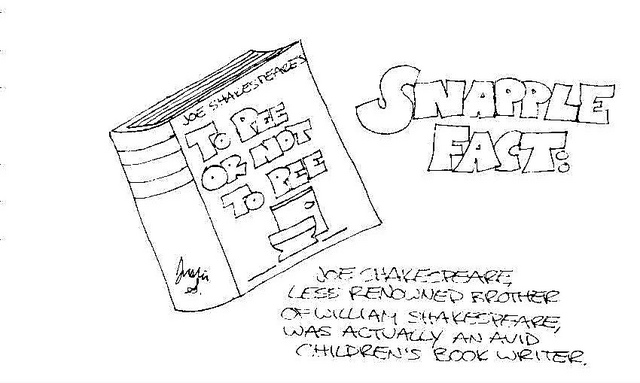 JOE SHAKESPEARE'S
TO PEE
OR NOT
TO PEE
SNAPPLE
FACT:
JOE SHAKESPEARE,
LESS RENOWNED BROTHER
OF WILLIAM SHAKESPEARE,
WAS ACTUALLY AN AVID
CHILDREN'S BOOK WRITER.